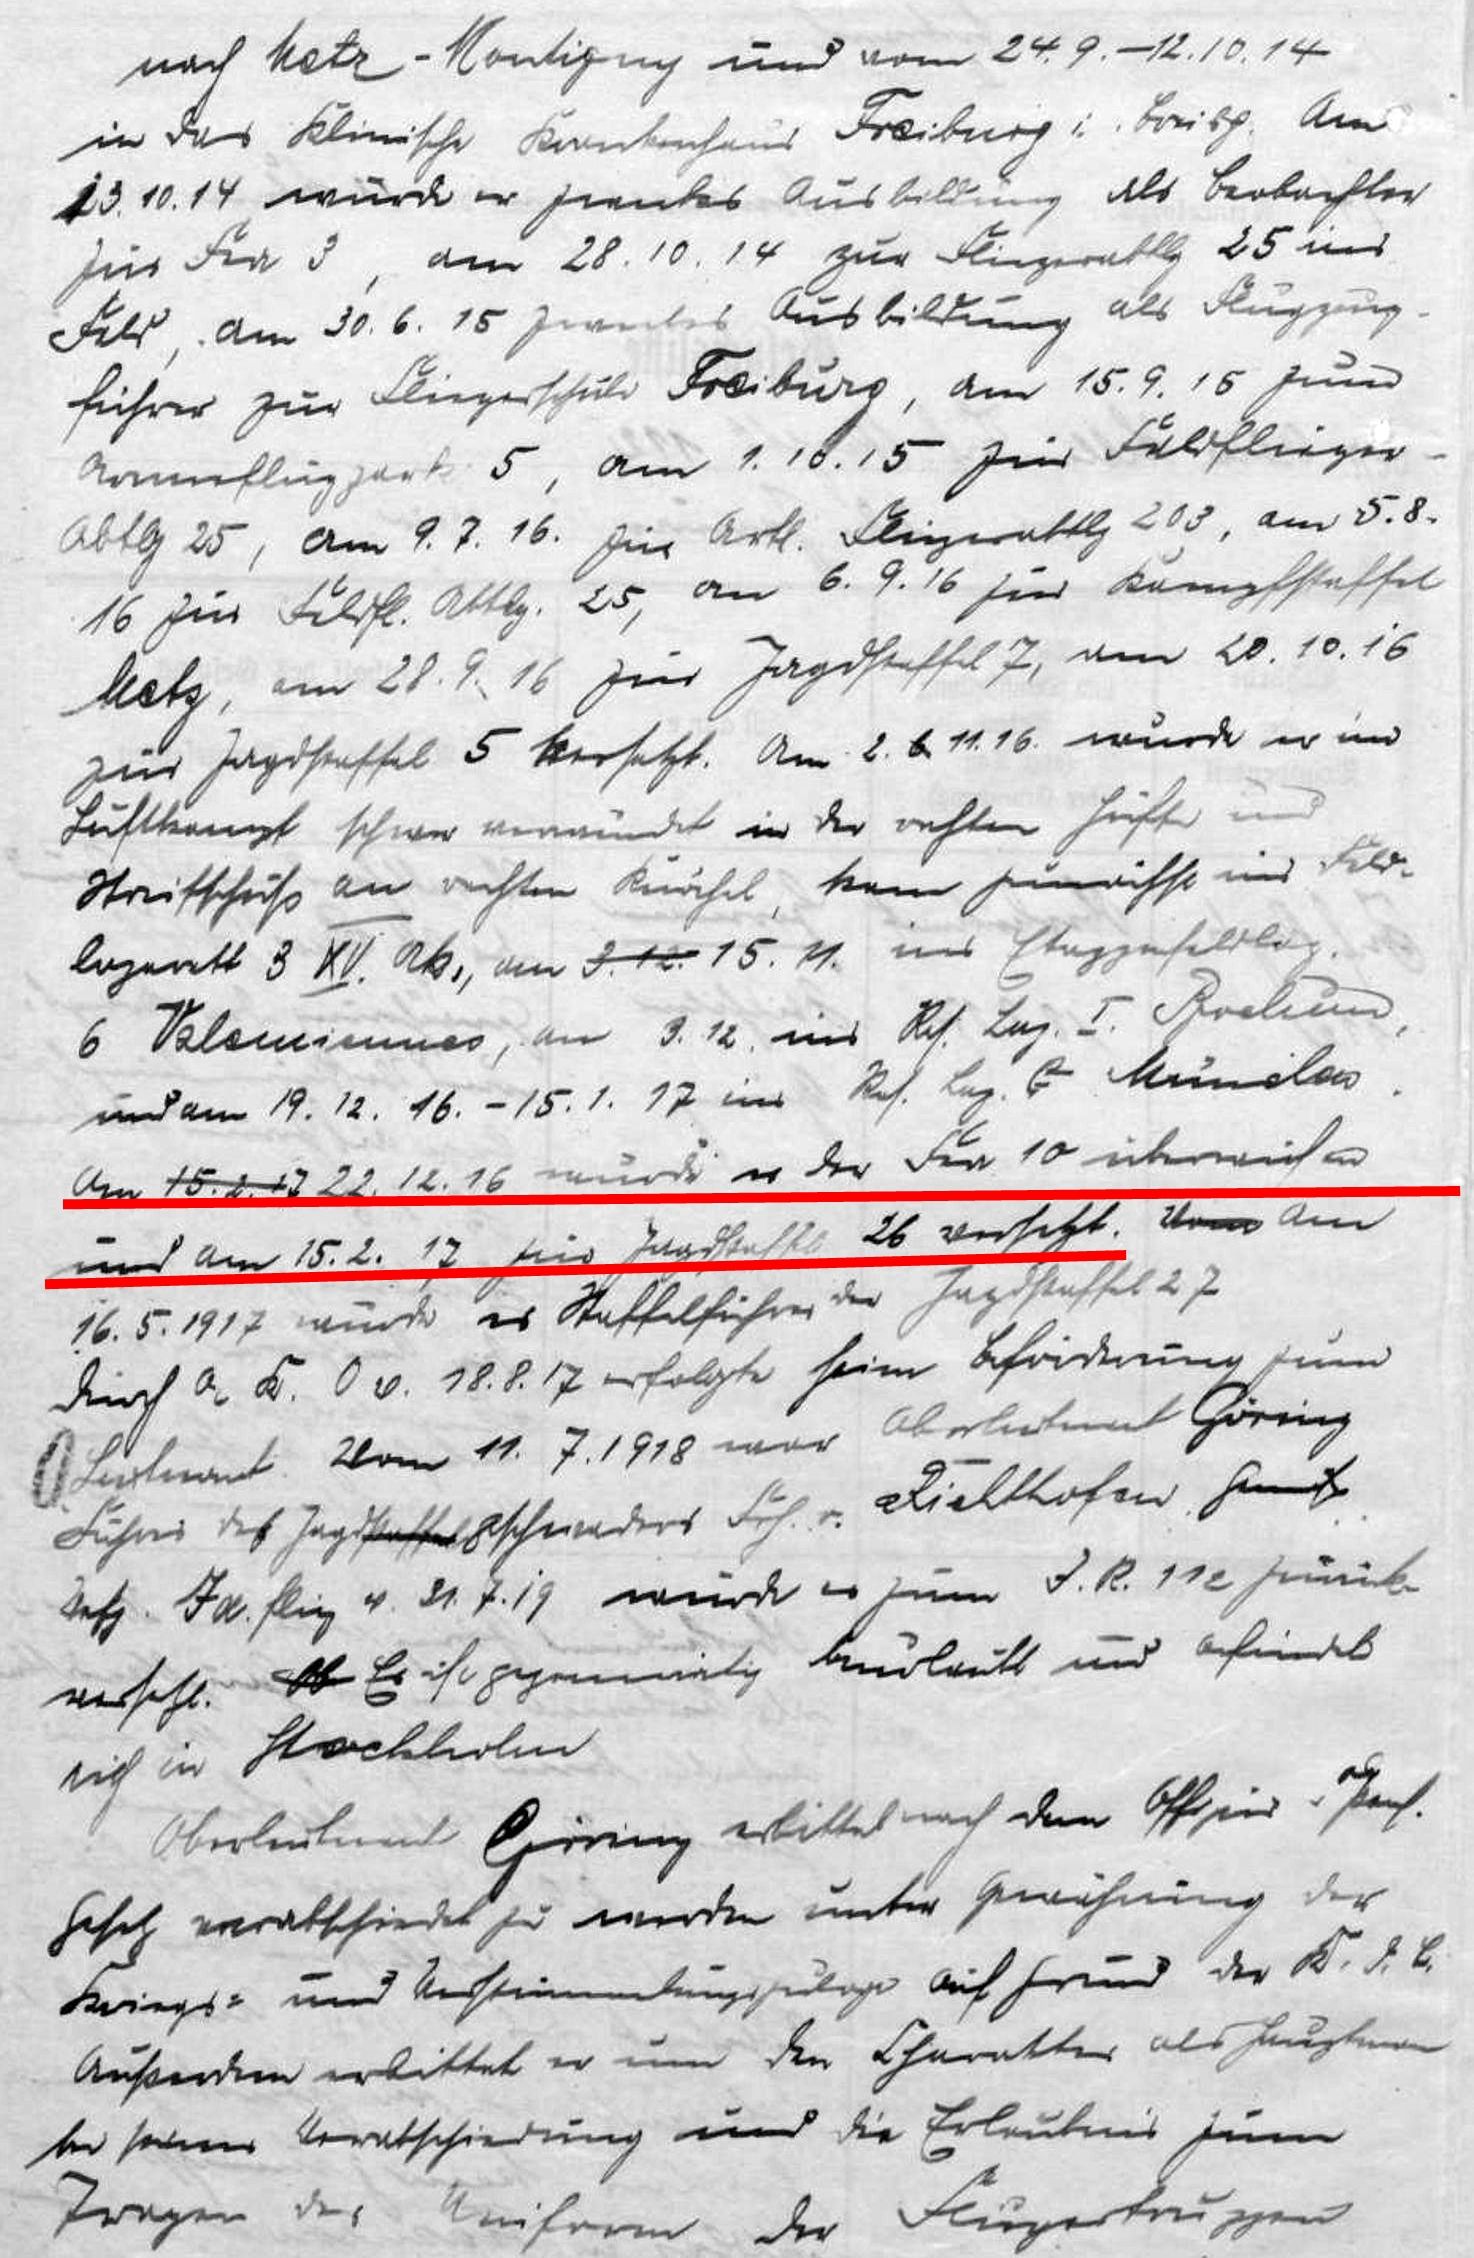 nach Metz-Montigny und vom 24.9.–12.10.14
in das Klinische Krankenhaus Freiburg i. Breisg. Am
13.10.14 wurde er zwecks Ausbildung als Beobachter
zur Fea 3, am 28.10.14 zur Fliegerabtlg 25 ins
Feld, am 30.6.15 zwecks Ausbildung als Flugzeug-
führer zur Fliegerschule Freiburg, am 15.9.15 zum
Armeeflugpark 5, am 1.10.15 zur Feldflieger-
Abtlg 25, am 9.7.16. zur Artl. Fliegerabtlg 203, am 5.8.
16 zur Feldfl. Abtlg. 25, am 6.9.16 zur Kampfstaffel
Metz, am 28.9.16 zur Jagdstaffel 7, am 20.10.16
zur Jagdstaffel 5 versetzt. Am 2. 11.16. wurde er im
Luftkampf schwer verwundet in der rechten Hüfte und
Streifschuß am rechten Knöchel, kam zunächst ins Feld-
lazarett 3 XV. Ak., am 3.12. 15.11. ins Etappenfeldlaz.
6 Valenciennes, am 3.12. ins Res. Laz. I. Bochum,
und am 19.12.16.–15.1.17 ins Res. Laz. München.
Am 22.12.16 wurde er der Fea 10 überwiesen
und am 15.2.17 zur Jagdstaffel 26 versetzt. Vom Am
16.5.1917 wurde er Staffelführer der Jagdstaffel 27
durch A. K. O v. 18.8.17 erfolgte seine Beförderung zum
Oberleutnant. Vom 11.7.1918 war Oberleutnant Göring
Führer des Jagdstaffel geschwaders Frh. v. Richthofen. Gemäß
Verfg. Id. flieg v. 31.7.19 wurde er zum I.R. 112 zurück-
versetzt. Er ist gegenwärtig beurlaubt und befindet
sich in Stockholm
Oberleutnant Göring erbittet nach dem Offizier Pens.
Gesetz verabschiedet zu werden unter Gewährung der
Kriegs- und Verstümmelungszulage auf Grund der K.D.B.
Außerdem erbittet er um den Charakter als Hauptmann
bei seiner Verabschiedung und die Erlaubnis zum
Tragen der Uniform der Fliegertruppen